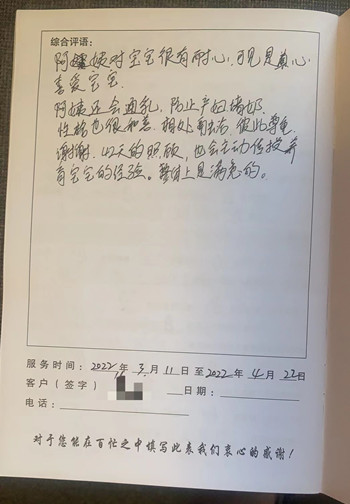 综合评语：
阿姨对宝宝很有耐心，可见是真心
喜爱宝宝。
阿姨还会通乳，防止产妇堵奶。
性格也很和善，相处融洽，彼此尊重。
谢谢，42天的照顾，也会主动传授养
育宝宝的经验。整体上是满意的。
服务时间：2022年 3 月 11 日 至 2022 年 4 月 22日
客户（签字）
日期：
电话：
对于您能在百忙之中填写此表我们衷心的感谢！